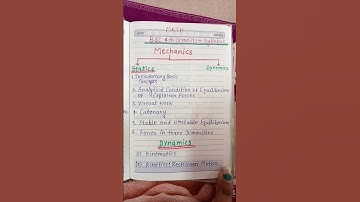 MATH
BSC 4th Semester Syllabus
Mechanics
Statics Dynamics
1. Introductory Basic
Concepts
2. Analytical Condition of Equilibrium
of Coplanar Forces
3. Virtual Work
4. Catenary
5. Stable and Unstable Equilibrium
6. Forces in three Dimensions
Dynamics
(1) Kinematics
(2) Kinetics: Rectilinear Motion